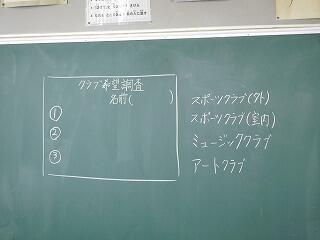 クラブ希望調査
名前(　　　)
①
②
③
スポーツクラブ(外)
スポーツクラブ(室内)
ミュージッククラブ
アートクラブ